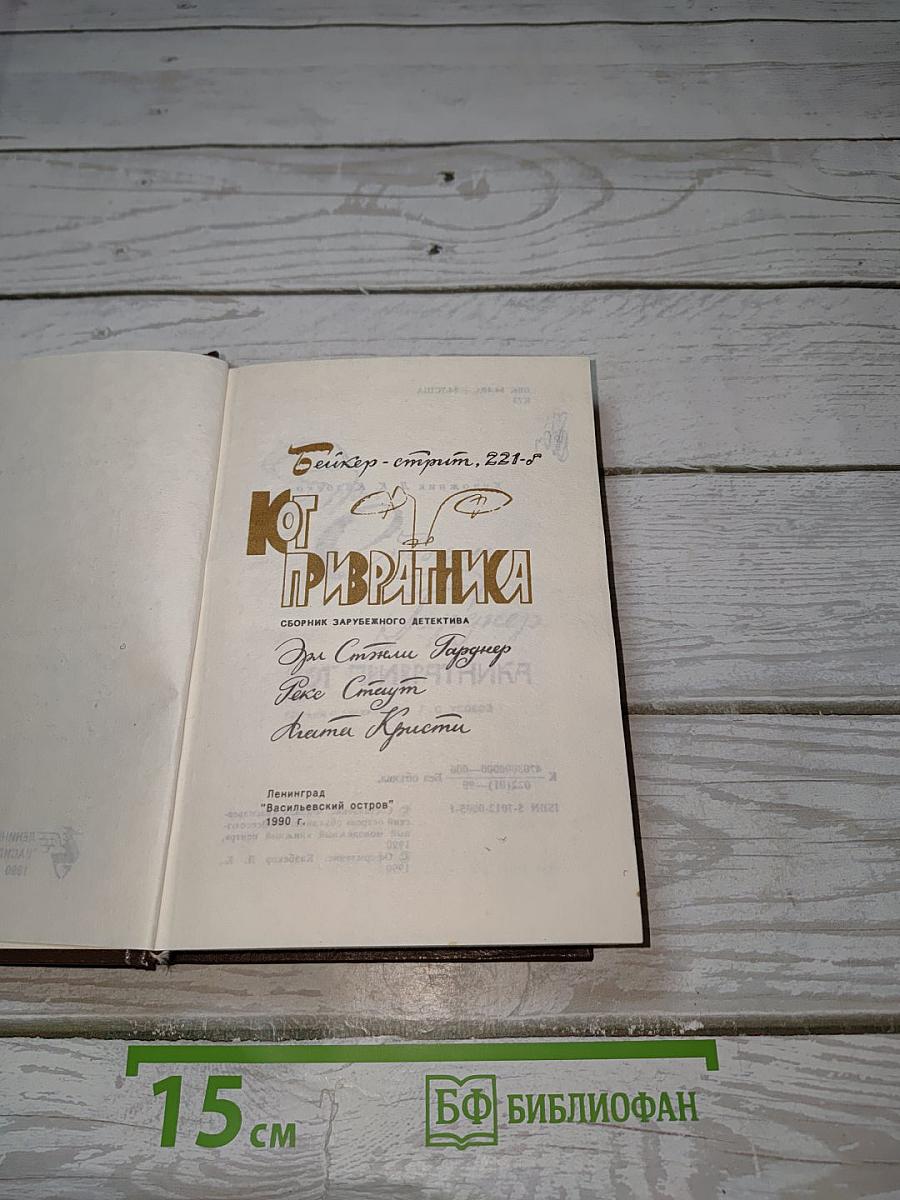 Бейкер-стрит, 221-б
КОТ
ПРИВРАТНИКА
СБОРНИК ЗАРУБЕЖНОГО ДЕТЕКТИВА
Эрл Стэнли Гарднер
Рекс Стаут
Агата Кристи
Ленинград
"Васильевский остров"
1990 г.
15 см
БФ БИБЛИОФАН